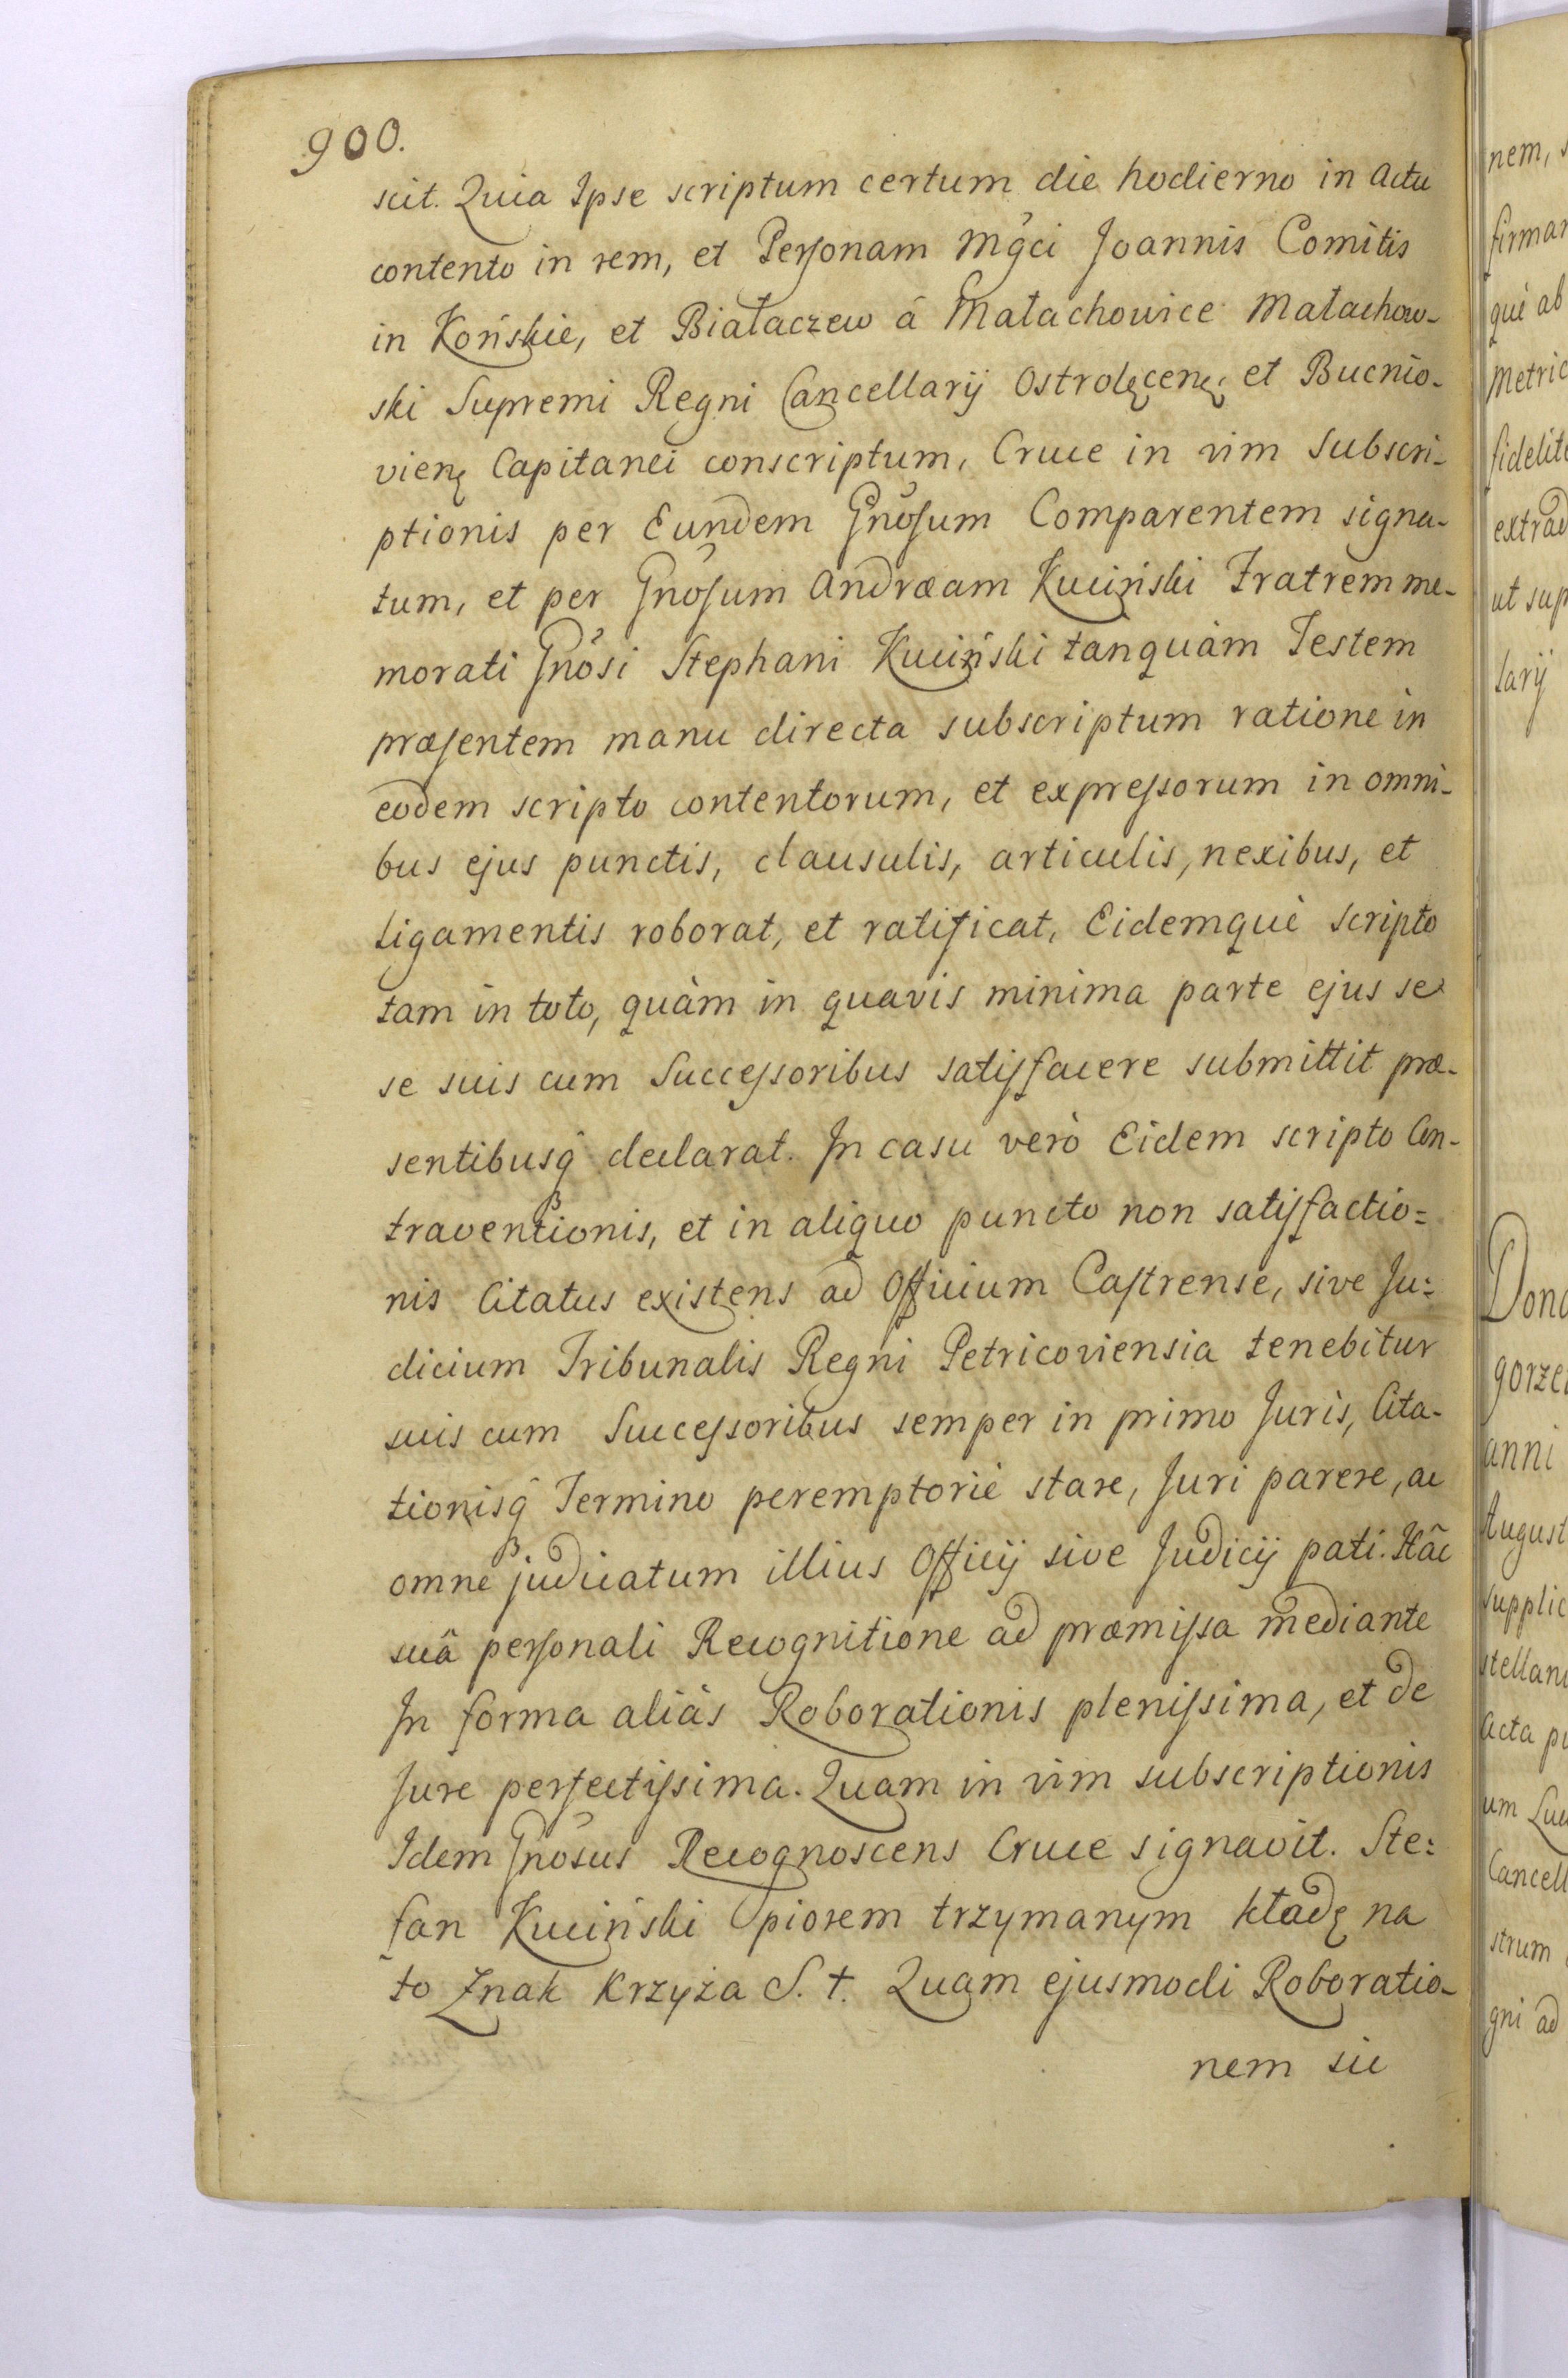 900.
scit. Quia Ipse scriptum certum die hodierno in Actu
contento in rem, et Personam Mgci Joannis Comitis
in Końskie, et Białaczew â Małachowice Małachow-
ski Supremi Regni Cancellarij Ostrolęcenę, et Bucnio-
vienę Capitanei conscriptum, Cruce in vim Subscri-
ptionis per Eundem Gnosum Comparentem signa-
tum, et per Gnosum Andræam Kuciński Fratrem me-
morati Gnosi Stephani Kuciński tanquàm Testem
præsentem manu directa subscriptum ratione in
eodem scripto contentorum, et expressorum in omni-
bus ejus punctis, clausulis, articulis, nexibus, et
ligamentis roborat, et ratificat, Eidemquè scripto
tam in toto, quàm in quavis minima parte ejus se
se suis cum Successoribus satisfacere submittit præ-
sentibusq̂ declarat. In casu verò Eidem scripto Con-
traventionis, et in aliquo puncto non satisfactio=
nis Citatus existens ad Officium Castrense, sive Ju=
dicium Tribunalis Regni Petricoviensia tenebitur
suis cum Successoribus semper in primo Juris, Cita-
tionisq̂ Termino peremptoriè stare, Juri parere, ac
omne judicatum illius Officij sive Judicij pati. Hâc
suâ personali Recognitione ad præmissa mediante
In forma aliàs Roborationis plenissima, et de
Jure perfectissima. Quam in vim subscriptionis
Idem Gnosus Recognoscens Cruce signavit. Ste=
fan Kuciński piorem trzymanym kładę na
to Znak Krzyża S. †. Quam ejusmodi Roboratio-
nem sic
nem,
firmar
què ab
Metric
fidelit
extrad
ut sup
larij
Dona
gorze
anni
August
supplic
stellan
Acta
um
Cancell
strum
gni ad